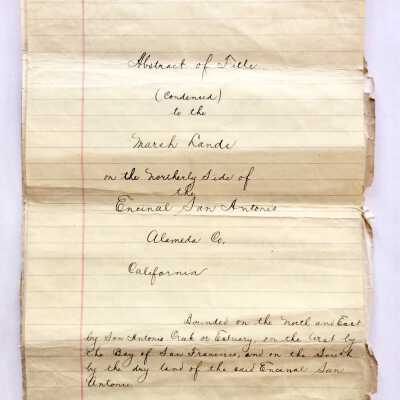 Abstract of Title
(Condensed)
to the
Marsh Lands
on the Northerly Side of
the
Encinal San Antonio
Alameda Co.
California
Bounded on the North and East
by San Antonio Creek or Estuary, on the West by
the Bay of San Francisco, and on the South
by the dry land of the said Encinal San
Antonio